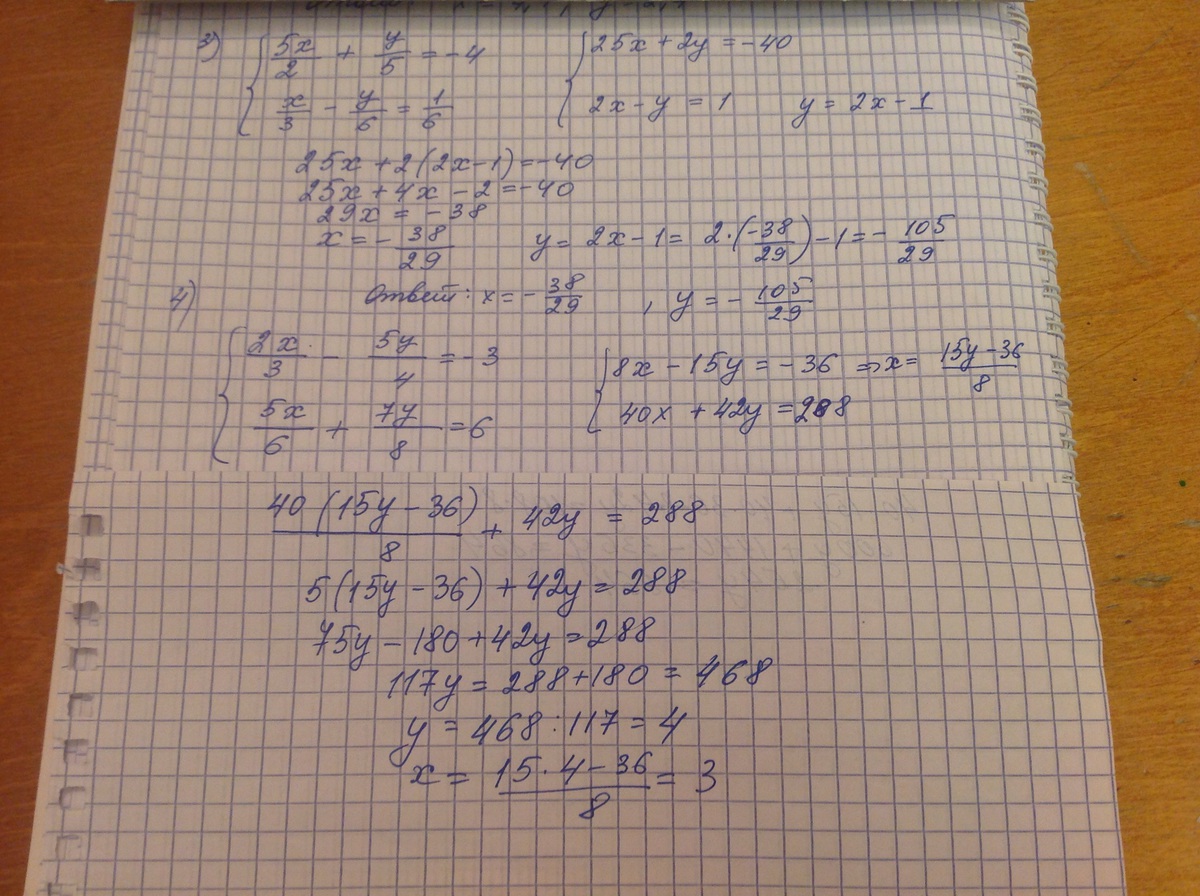 3) { 5x/2 + y/5 = -4 { 25x + 2y = -40
x/3 - y/6 = 1/6 2x - y = 1 y = 2x - 1
25x + 2(2x-1) = -40
25x + 4x - 2 = -40
29x = -38
x = - 38/29 y = 2x - 1 = 2·(-38/29) - 1 = - 105/29
Ответ: x = - 38/29 , y = - 105/29
4)
{ 2x/3 - 5y/4 = -3 { 8x - 15y = -36 => x = (15y-36)/8
5x/6 + 7y/8 = 6 40x + 42y = 288
40(15y-36)/8 + 42y = 288
5(15y - 36) + 42y = 288
75y - 180 + 42y = 288
117y = 288 + 180 = 468
y = 468 : 117 = 4
x = (15·4-36)/8 = 3